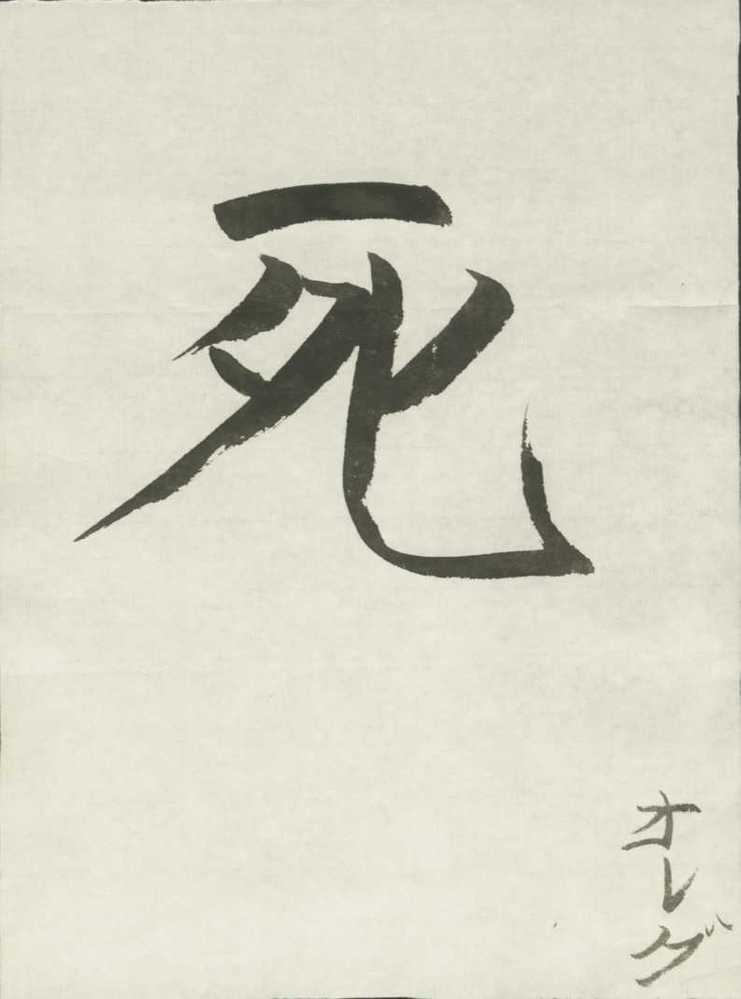 死
オレグ